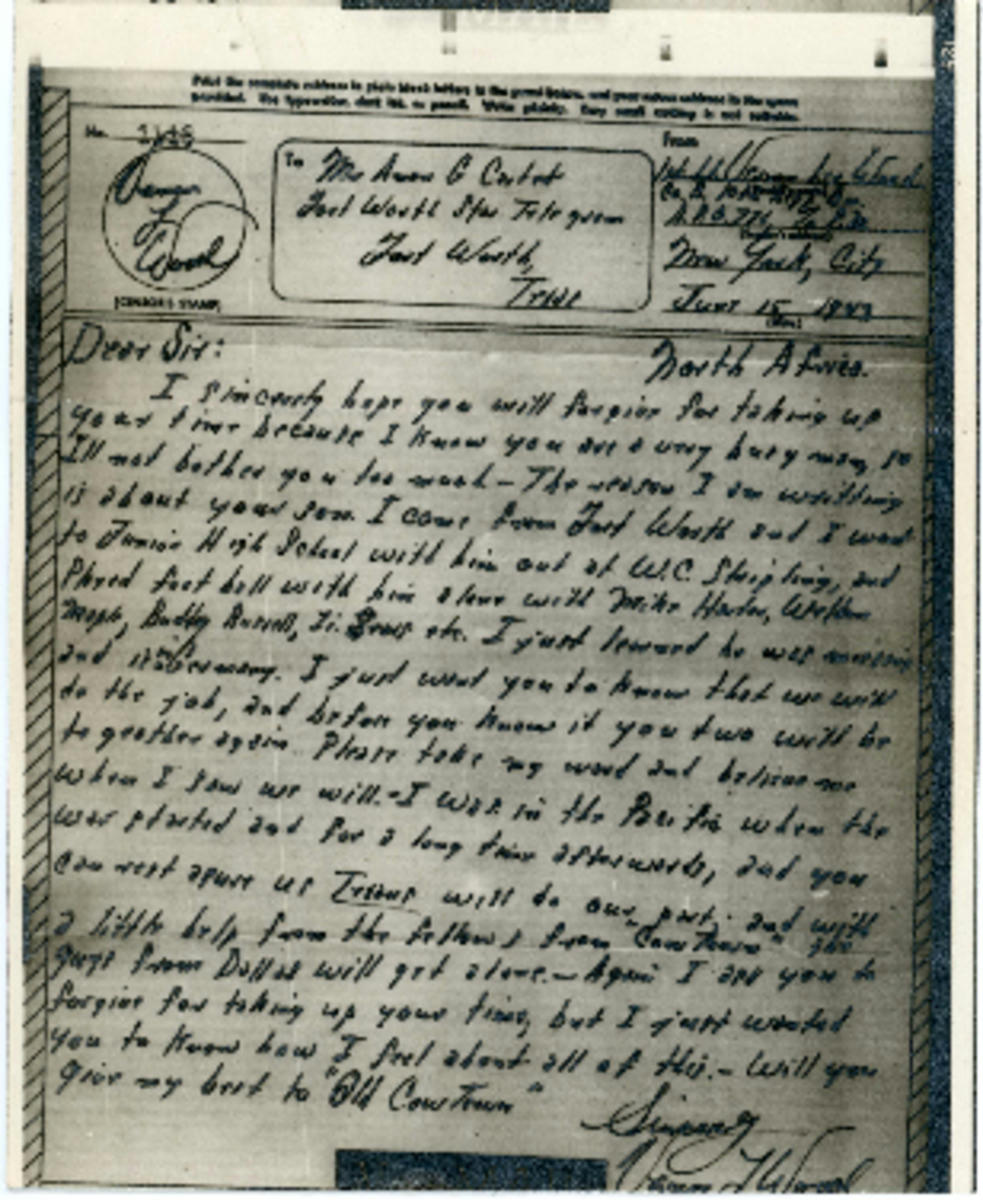 Print the complete address in plain block letters in the panel below, and your return address in the space
provided. Use typewriter, dark ink, or pencil. Write plainly. Very small writing is not suitable.
No.
(CENSOR'S STAMP)
To
Mr Amon G Carter
Fort Worth Star Telegram
Fort Worth,
Texas
From
New York, City
June 15 1943
Dear Sir:
North Africa.
I sincerely hope you will forgive for taking up
your time because I know you are a very busy man, so
I'll not bother you too much - The reason I am writting
is about your son. I come from Fort Worth and I went
to Junior High School with him out at W.C. Stripling, and
Played foot ball with him along with Mike Harter,
Buddy Russell, etc. I just learned he was missing
and in Germany. I just want you to know that we will
do the job, and before you know it you two will be
to geather again. Please take my word and believe me
when I say we will. - I was in the Pacific when the
war started and for a long time afterwards, and you
can rest asure us Texans will do our part; and with
a little help from the fellows from "Cow Town" the
guys from Dallas will get along. - Again I ask you to
forgive for taking up your time, but I just wanted
you to know how I feel about all of this. - Will you
give my best to "Old Cow Town"
Sincerely